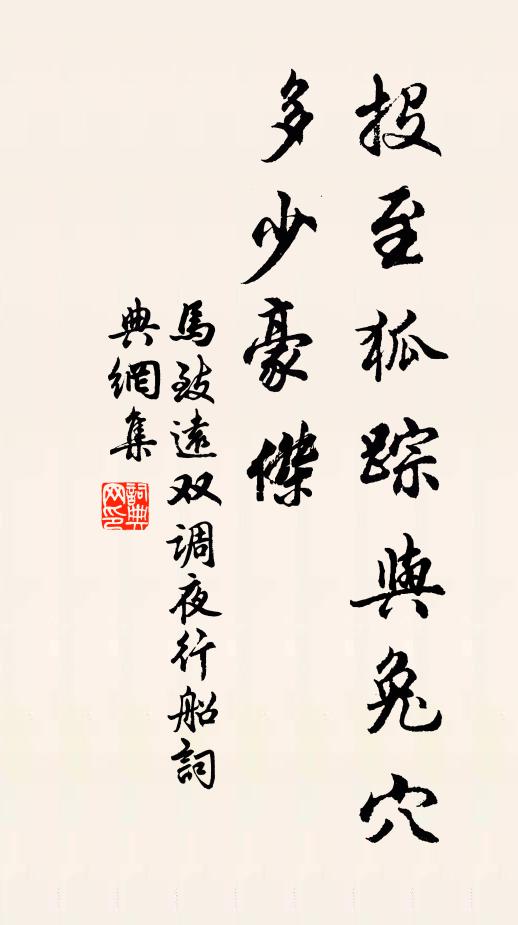 投至狐踪與兔穴
多少豪傑
馬致遠双调夜行船詞
典網集
詞典网印